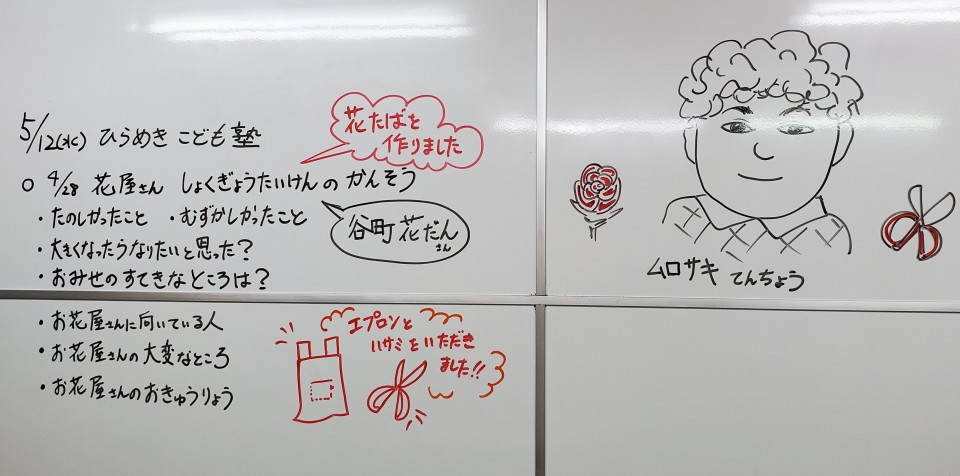 5/12(水) ひらめき こども塾
花たばを
作りました
○ 4/28 花屋さん しょくぎょうたいけんの かんそう
・たのしかったこと ・むずかしかったこと
谷町 花だん
さん
・大きくなったらなりたいと思った?
・おみせのすてきなところは?
・お花屋さんに向いている人
・お花屋さんの大変なところ
・お花屋さんのおきゅうりょう
エプロンと
ハサミをいただき
ました!!
ムロサキ てんちょう